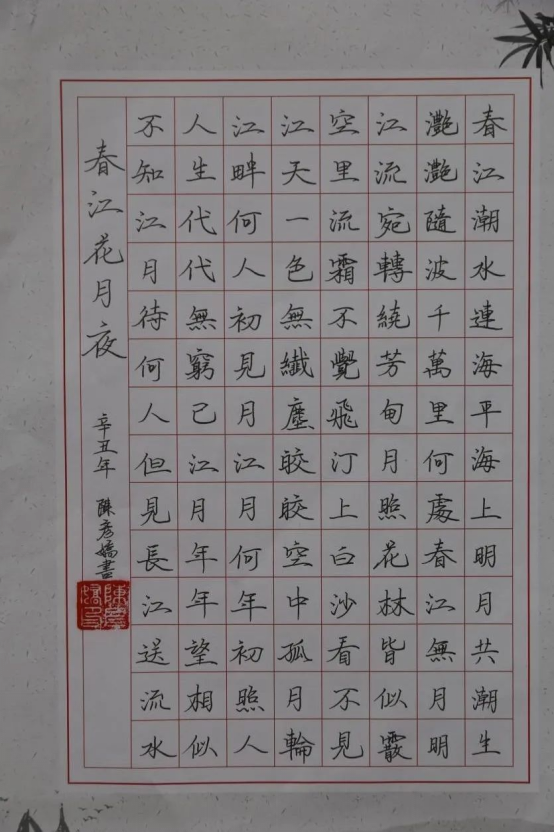 春江潮水連海平海上明月共潮生
灧灧隨波千萬里何處春江無月明
江流宛轉繞芳甸月照花林皆似霰
空里流霜不覺飛汀上白沙看不見
江天一色無纖塵皎皎空中孤月輪
江畔何人初見月江月何年初照人
人生代代無窮已江月年年望相似
不知江月待何人但見長江送流水
春江花月夜
辛丑年 陳彥嬌書